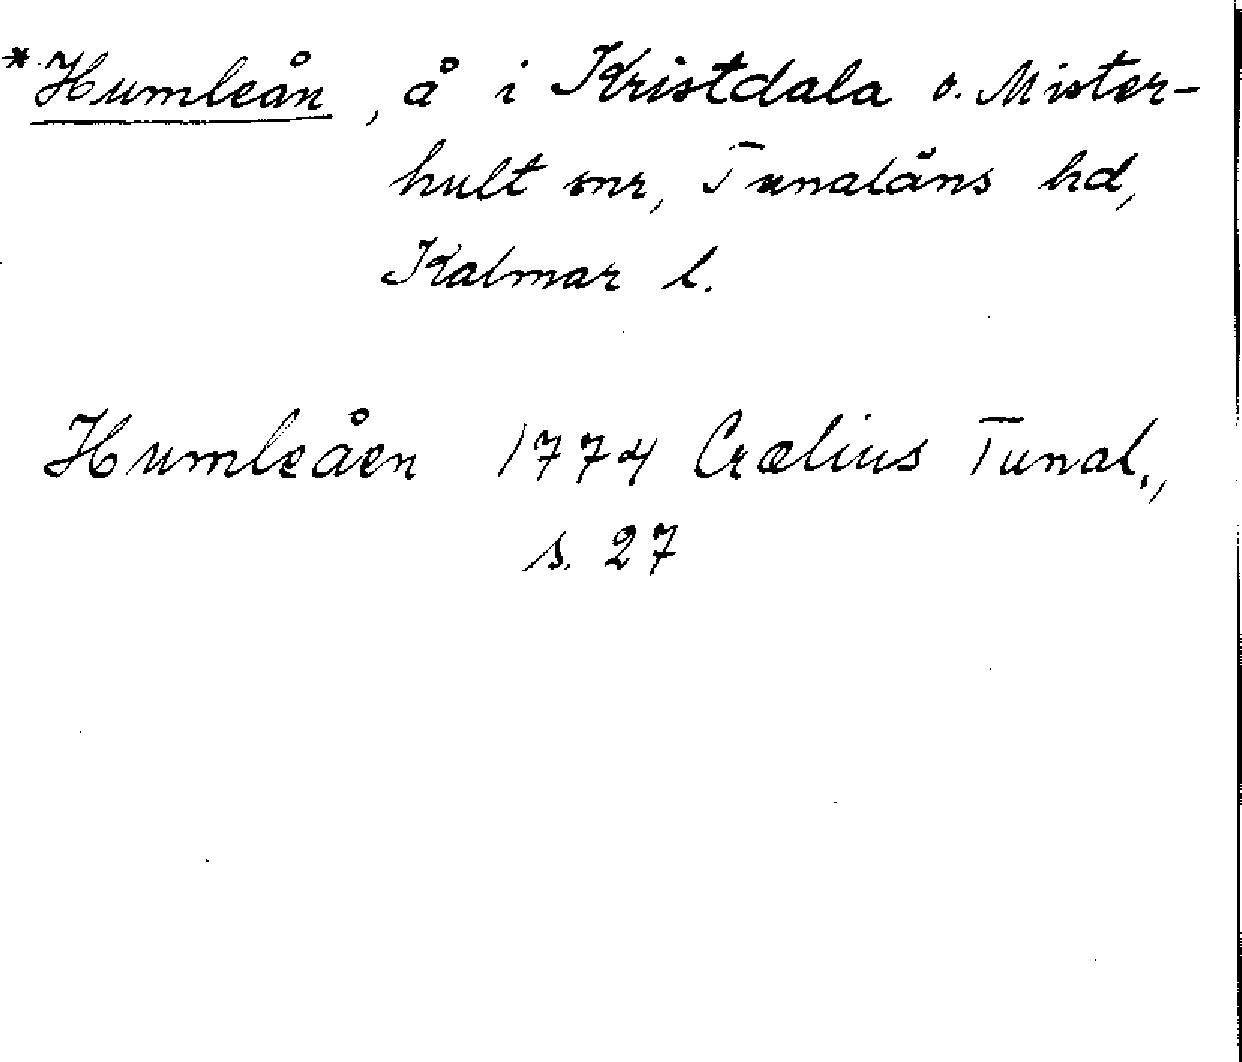 *Humleån, å i Kristdala o. Mister-
hult snr, Tunaläns hd,
Kalmar l.
Humleåen 1774 Crælius Tunal.,
s. 27